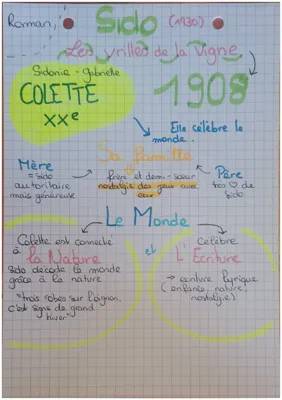 Roman, • Sido (1930) •
Les vrilles de la Vigne
Sidonie - Gabrielle
COLETTE
XXe
1908
Elle célèbre le
monde.
Sa famille
Mère
= Sido
autoritaire
mais généreuse
frère et demi-sœur
nostalgie des jeux avec
eux
Père
de Sido
Le Monde
Colette est connectée
à
la Nature
Sido décode le monde
grâce à la nature
"trois robes sur l'oignon,
c'est signe de grand
hiver"
et
Célèbre
L'Ecriture
→ écriture lyrique
(enfance, nature,
nostalgie)